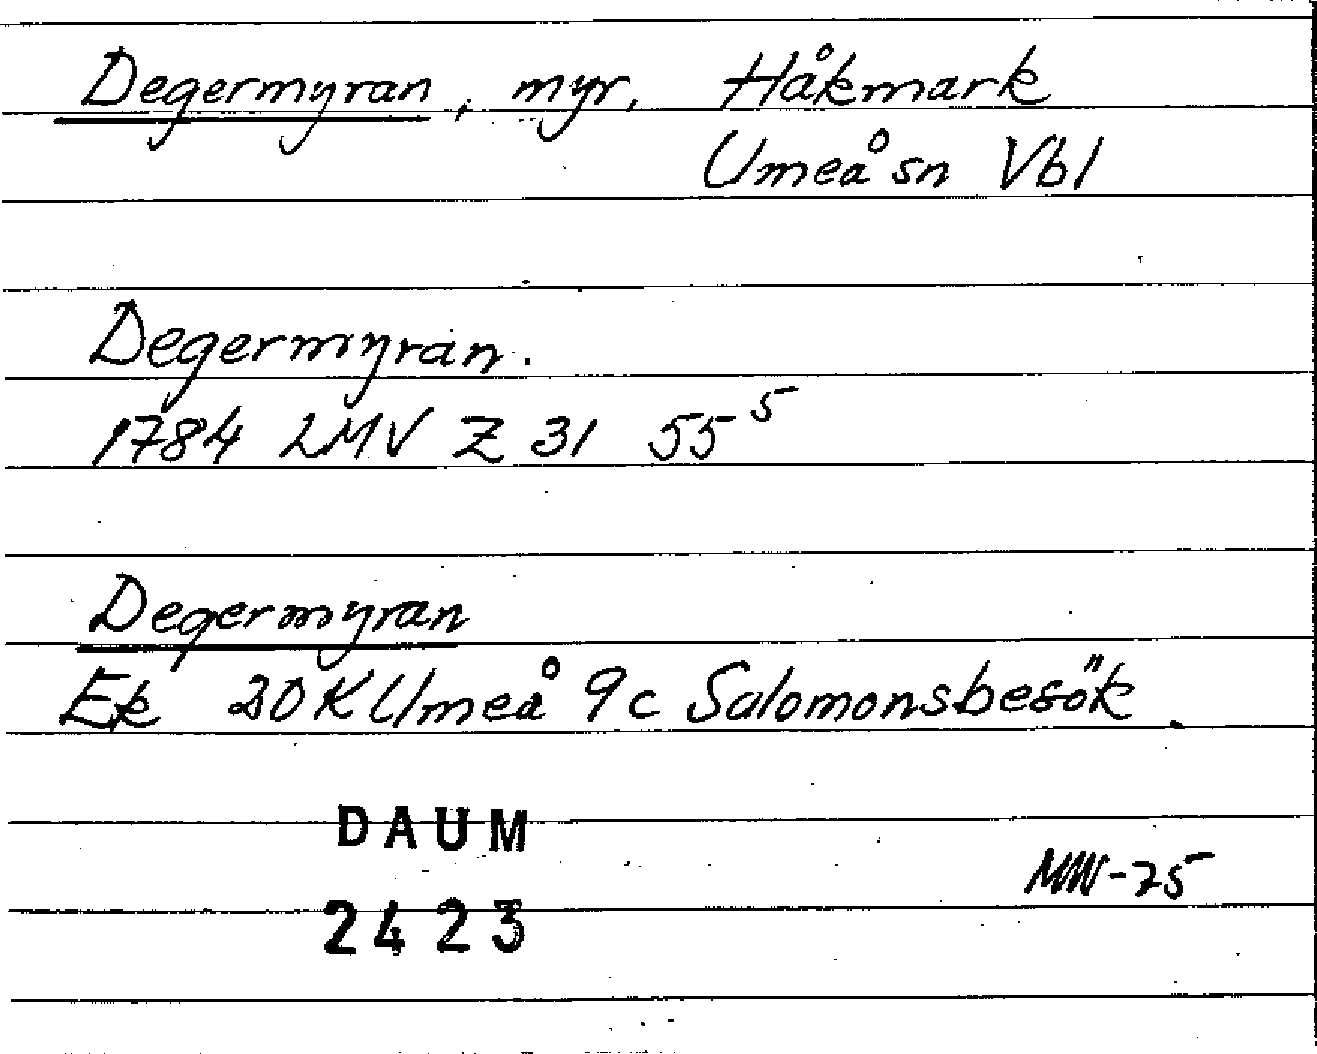 Degermyran, myr, Håkmark
Umeå sn Vbl
Degermyran.
1784 LMV Z 31 55⁵
Degermyran
Ek 20K Umeå 9c Salomonsbesök.
DAUM
2423
MW-75